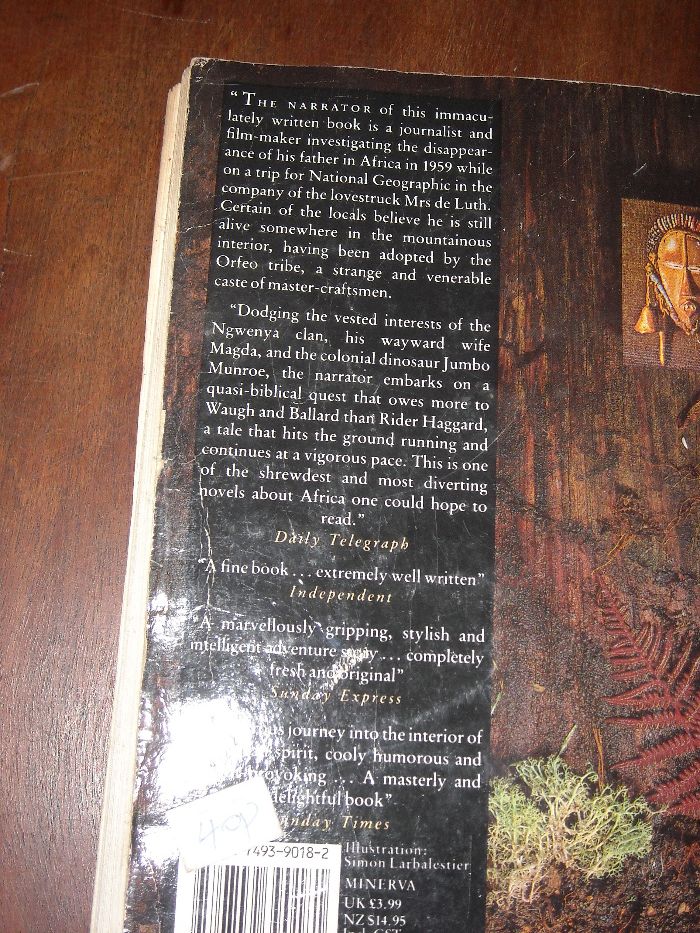 “THE NARRATOR of this immacu-
lately written book is a journalist and
film-maker investigating the disappear-
ance of his father in Africa in 1959 while
on a trip for National Geographic in the
company of the lovestruck Mrs de Luth.
Certain of the locals believe he is still
alive somewhere in the mountainous
interior, having been adopted by the
Orfeo tribe, a strange and venerable
caste of master-craftsmen.
“Dodging the vested interests of the
Ngwenya clan, his wayward wife
Magda, and the colonial dinosaur Jumbo
Munroe, the narrator embarks on a
quasi-biblical quest that owes more to
Waugh and Ballard than Rider Haggard,
a tale that hits the ground running and
continues at a vigorous pace. This is one
of the shrewdest and most diverting
novels about Africa one could hope to
read.”
Daily Telegraph
“A fine book . . . extremely well written”
Independent
“A marvellously gripping, stylish and
intelligent adventure story . . . completely
fresh and original”
Sunday Express
journey into the interior of
spirit, cooly humorous and
. . . A masterly and
delightful book”
Sunday Times
40p
7493-9018-2
Illustration:
Simon Larbalestier
MINERVA
UK £3.99
NZ $14.95